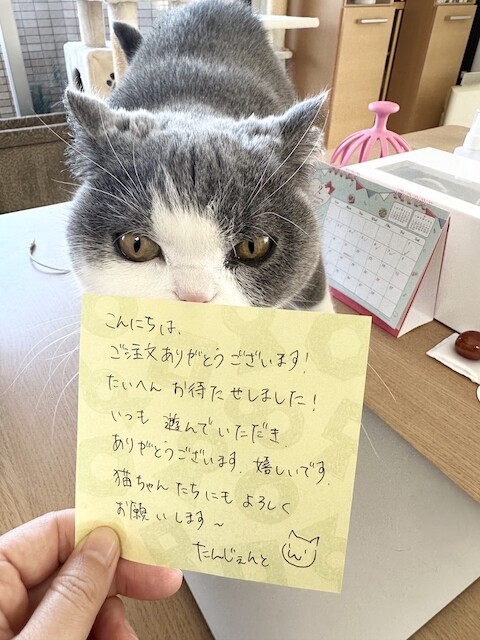 こんにちは、
ご注文ありがとうございます!
たいへん お待たせしました!
いつも 遊んでいただき
ありがとうございます。嬉しいです。
猫ちゃんたちにも よろしく
お願いします〜
たんじぇんと